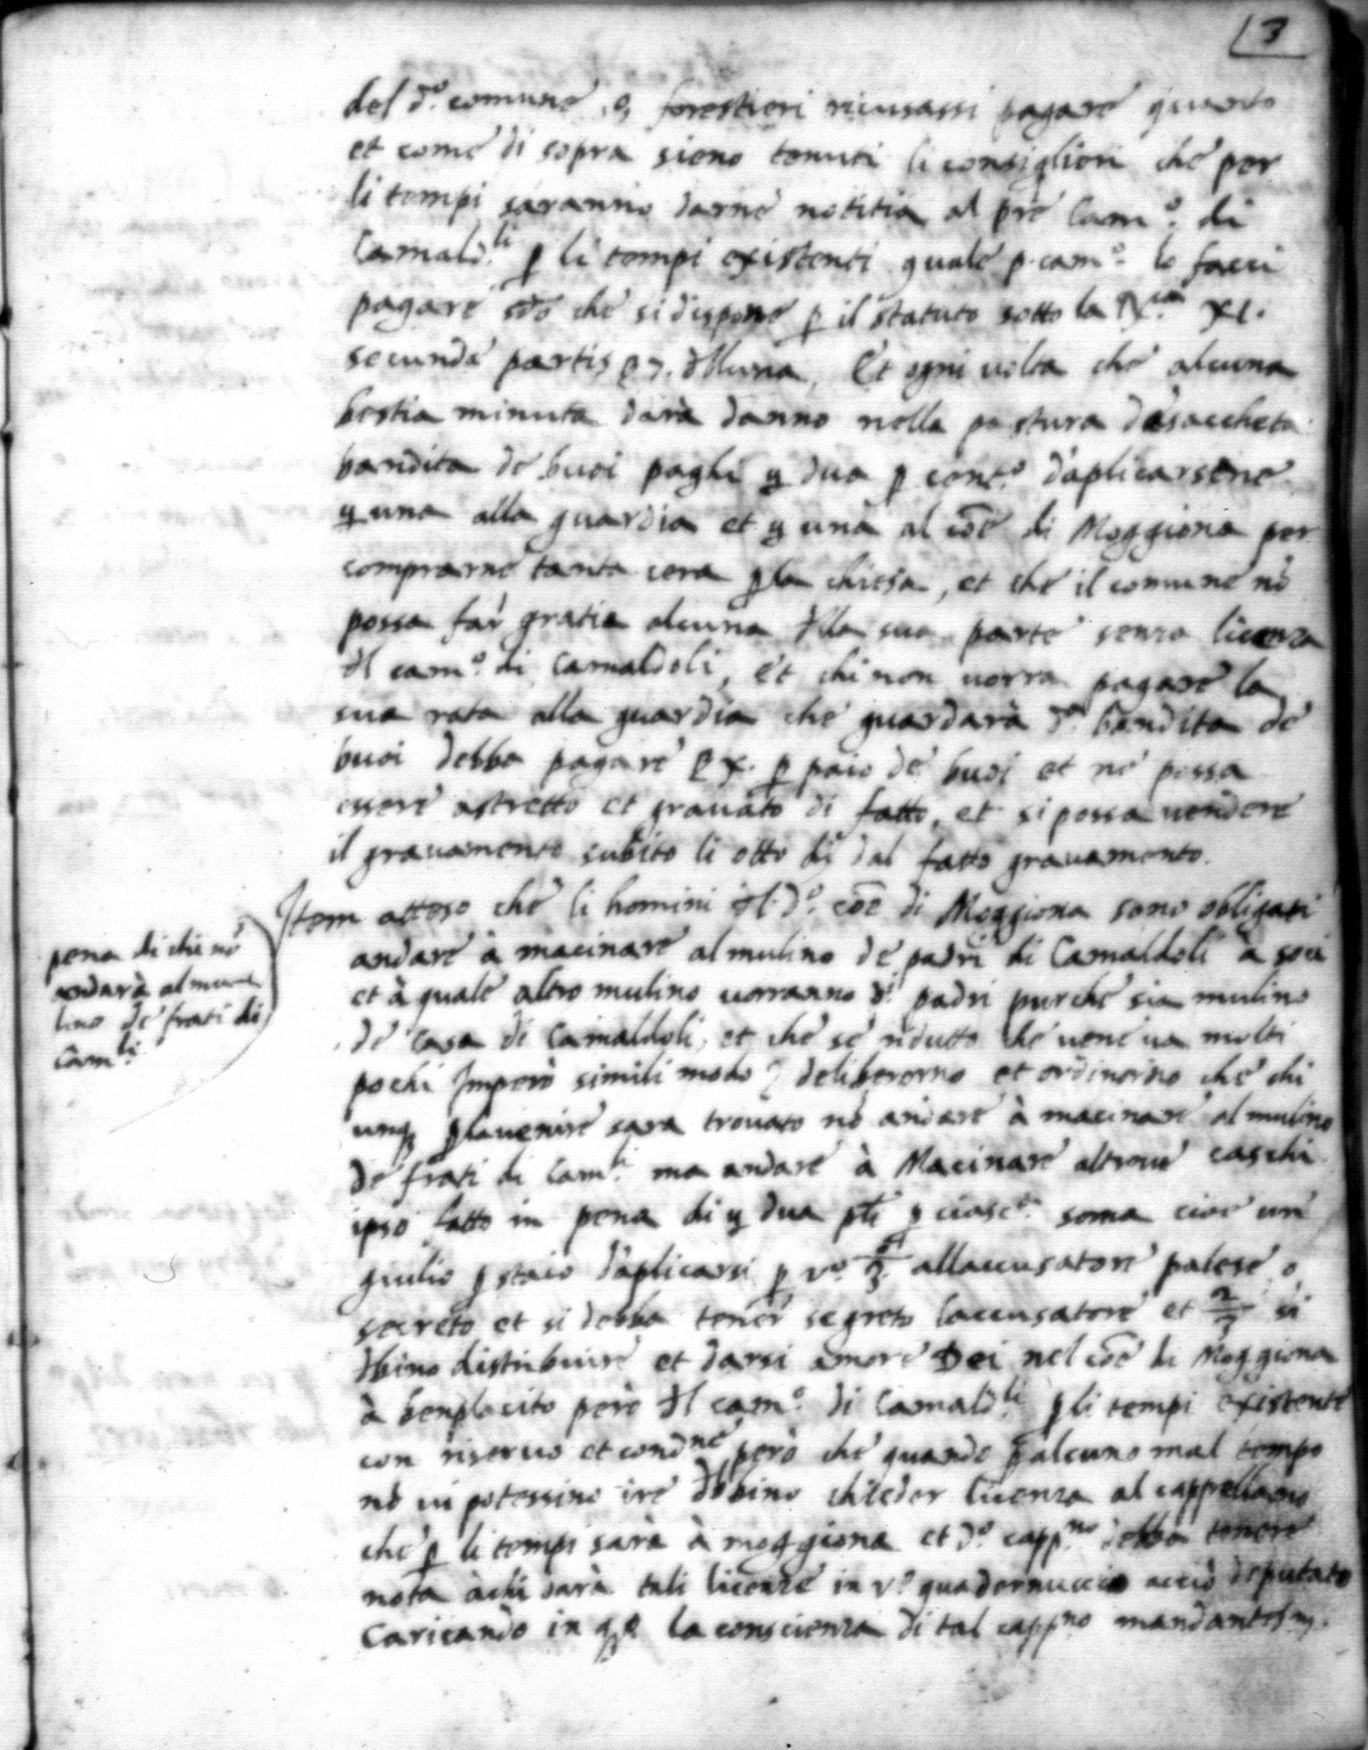 3
del d.º comune, o, forestieri ricusassi pagare quanto
et come di sopra sieno tenuti li consiglieri che per
li tempi saranno darne notitia al pre Cam.º di
Camald.li p li tempi existenti quale p. cam.º le facci
pagare sdo che si dispone p il statuto sotto la XI.
secunde partis dlluna, Et ogni volta che alcuna
bestia minuta darà danno nella pastura
bandita de buoi paghi dua p d'aplicarsene
una alla guardia et una al cōe di Moggiona per
comprarne tanta cera p la chiesa, et che il comune nō
possa far gratia alcuna dlla sua parte senza licenza
dl cam.º di Camaldoli, et chi non vorra pagare la
sua rata alla guardia che guardarà d.ª bandita de
buoi debba pagare x. p paio de buoi et ne possa
essere astretto et gravato di fatto, et si possa vendere
il gravamento subito li otto di dal fatto gravamento.
Item atteso che li homini dl d.º cōe di Moggiona sono obligati
andare à macinare al mulino de padri di Camaldoli à soci
et à quale altro mulino vorranno d.i padri purche sia mulino
de casa di Camaldoli, et che se ridutto che vene va molti
pochi Imperò simili modo deliberorno et ordinorno che chi
unq p lavenire sara trovato nō andare à macinare al mulino
de frati di Cam.li ma andare à Macinare altrove caschi
ipso fatto in pena di dua p ciasc.ª soma cioe un
giulio p staio d'aplicarsi p v.º allaccusatore palese o
secreto et si debba tener segreto laccusatore et 2/3 si
dbino distribuire et darsi amore Dei nel cōe di Moggiona
à benplacito però dl cam.º di Camald.li p li tempi existente
con riservo et condne però che quando p alcuno mal tempo
nō vi potessino ire dbbino chieder licenza al cappellano
che p li tempi sarà à moggiona et d.º capp.no debba tenere
nota à chi darà tali licenze in v.º quadernuccio acciò deputato
Caricando in qsto la conscienza di tal capp.no
pena di chi nō
andarà al mu
lino de frati di
Cam.li